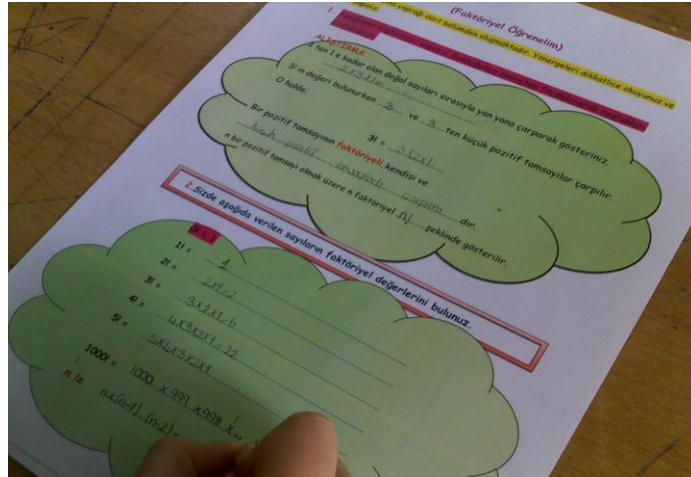 (Faktöriyel Öğrenelim)
yaprağı dört bölümden oluşmaktadır. Yönergeleri dikkatlice okuyunuz ve
1.
ALIŞTIRMA:
ten 1 e kadar olan doğal sayıları sırasıyla yan yana çarparak gösteriniz.
3! in değeri bulunurken 3 ve 3 ten küçük pozitif tamsayılar çarpılır.
O halde;
3! = 3x2x1
Bir pozitif tamsayının faktöriyeli, kendisi ve
dır.
n bir pozitif tamsayı olmak üzere n faktöriyel n! şeklinde gösterilir.
2. Sizde aşağıda verilen sayıların faktöriyel değerlerini bulunuz.
1! = 1
2! = 2x1=2
3! = 3x2x1=6
4! = 4x3x2x1=22
5! = 5x4x3x2x1
1000! = 1000 x 999 x 998 x
n != nx(n-1).(n-2)